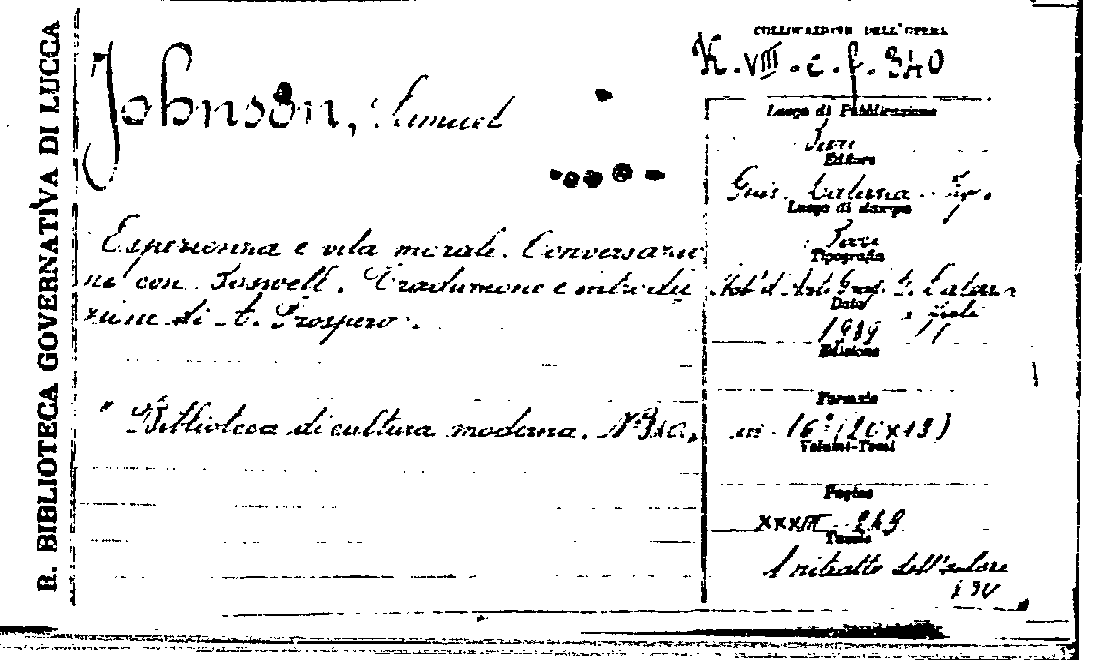 R. BIBLIOTECA GOVERNATIVA DI LUCCA
Johnson, Samuel
Esperienza e vita morale. Conversazio
ni con Boswell. Traduzione e introdu
zione di A. Prospero.
" Biblioteca di cultura moderna. N°
COLLOCAZIONE DELL'OPERA
K. VIII. c. f. 340
Luogo di Pubblicazione
Bari
Editore
Gius. Laterza
Luogo di stampa
Bari
Tipografia
Arti Graf. G. Laterza
Data
1939
Edizione
Formato
in 16° (20x13)
Volumi-Tomi
Pagine
XXXIII - 249
Tavole
1 ritratto dell'autore